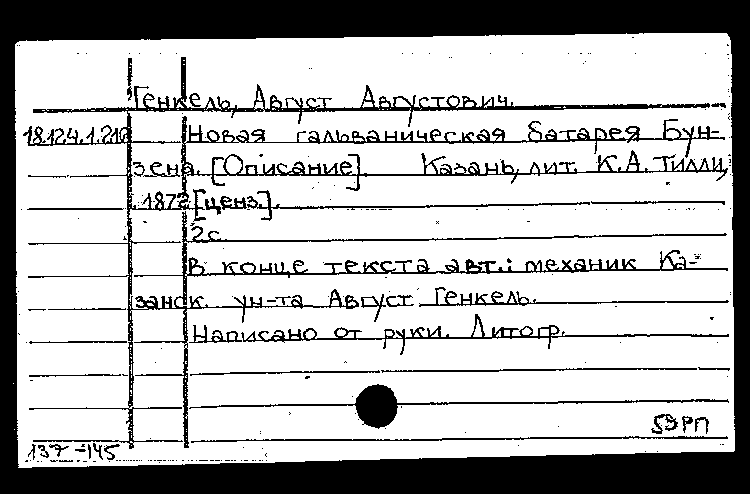 Генкель, Август Августович.
18.124.1.210 Новая гальваническая батарея Бун-
зена. [Описание]. Казань, лит. К.А. Тилли,
1872 [ценз.].
2с.
В конце текста авт.: механик Ка-
занск. ун-та Август Генкель.
Написано от руки. Литогр.
59РП
137-145